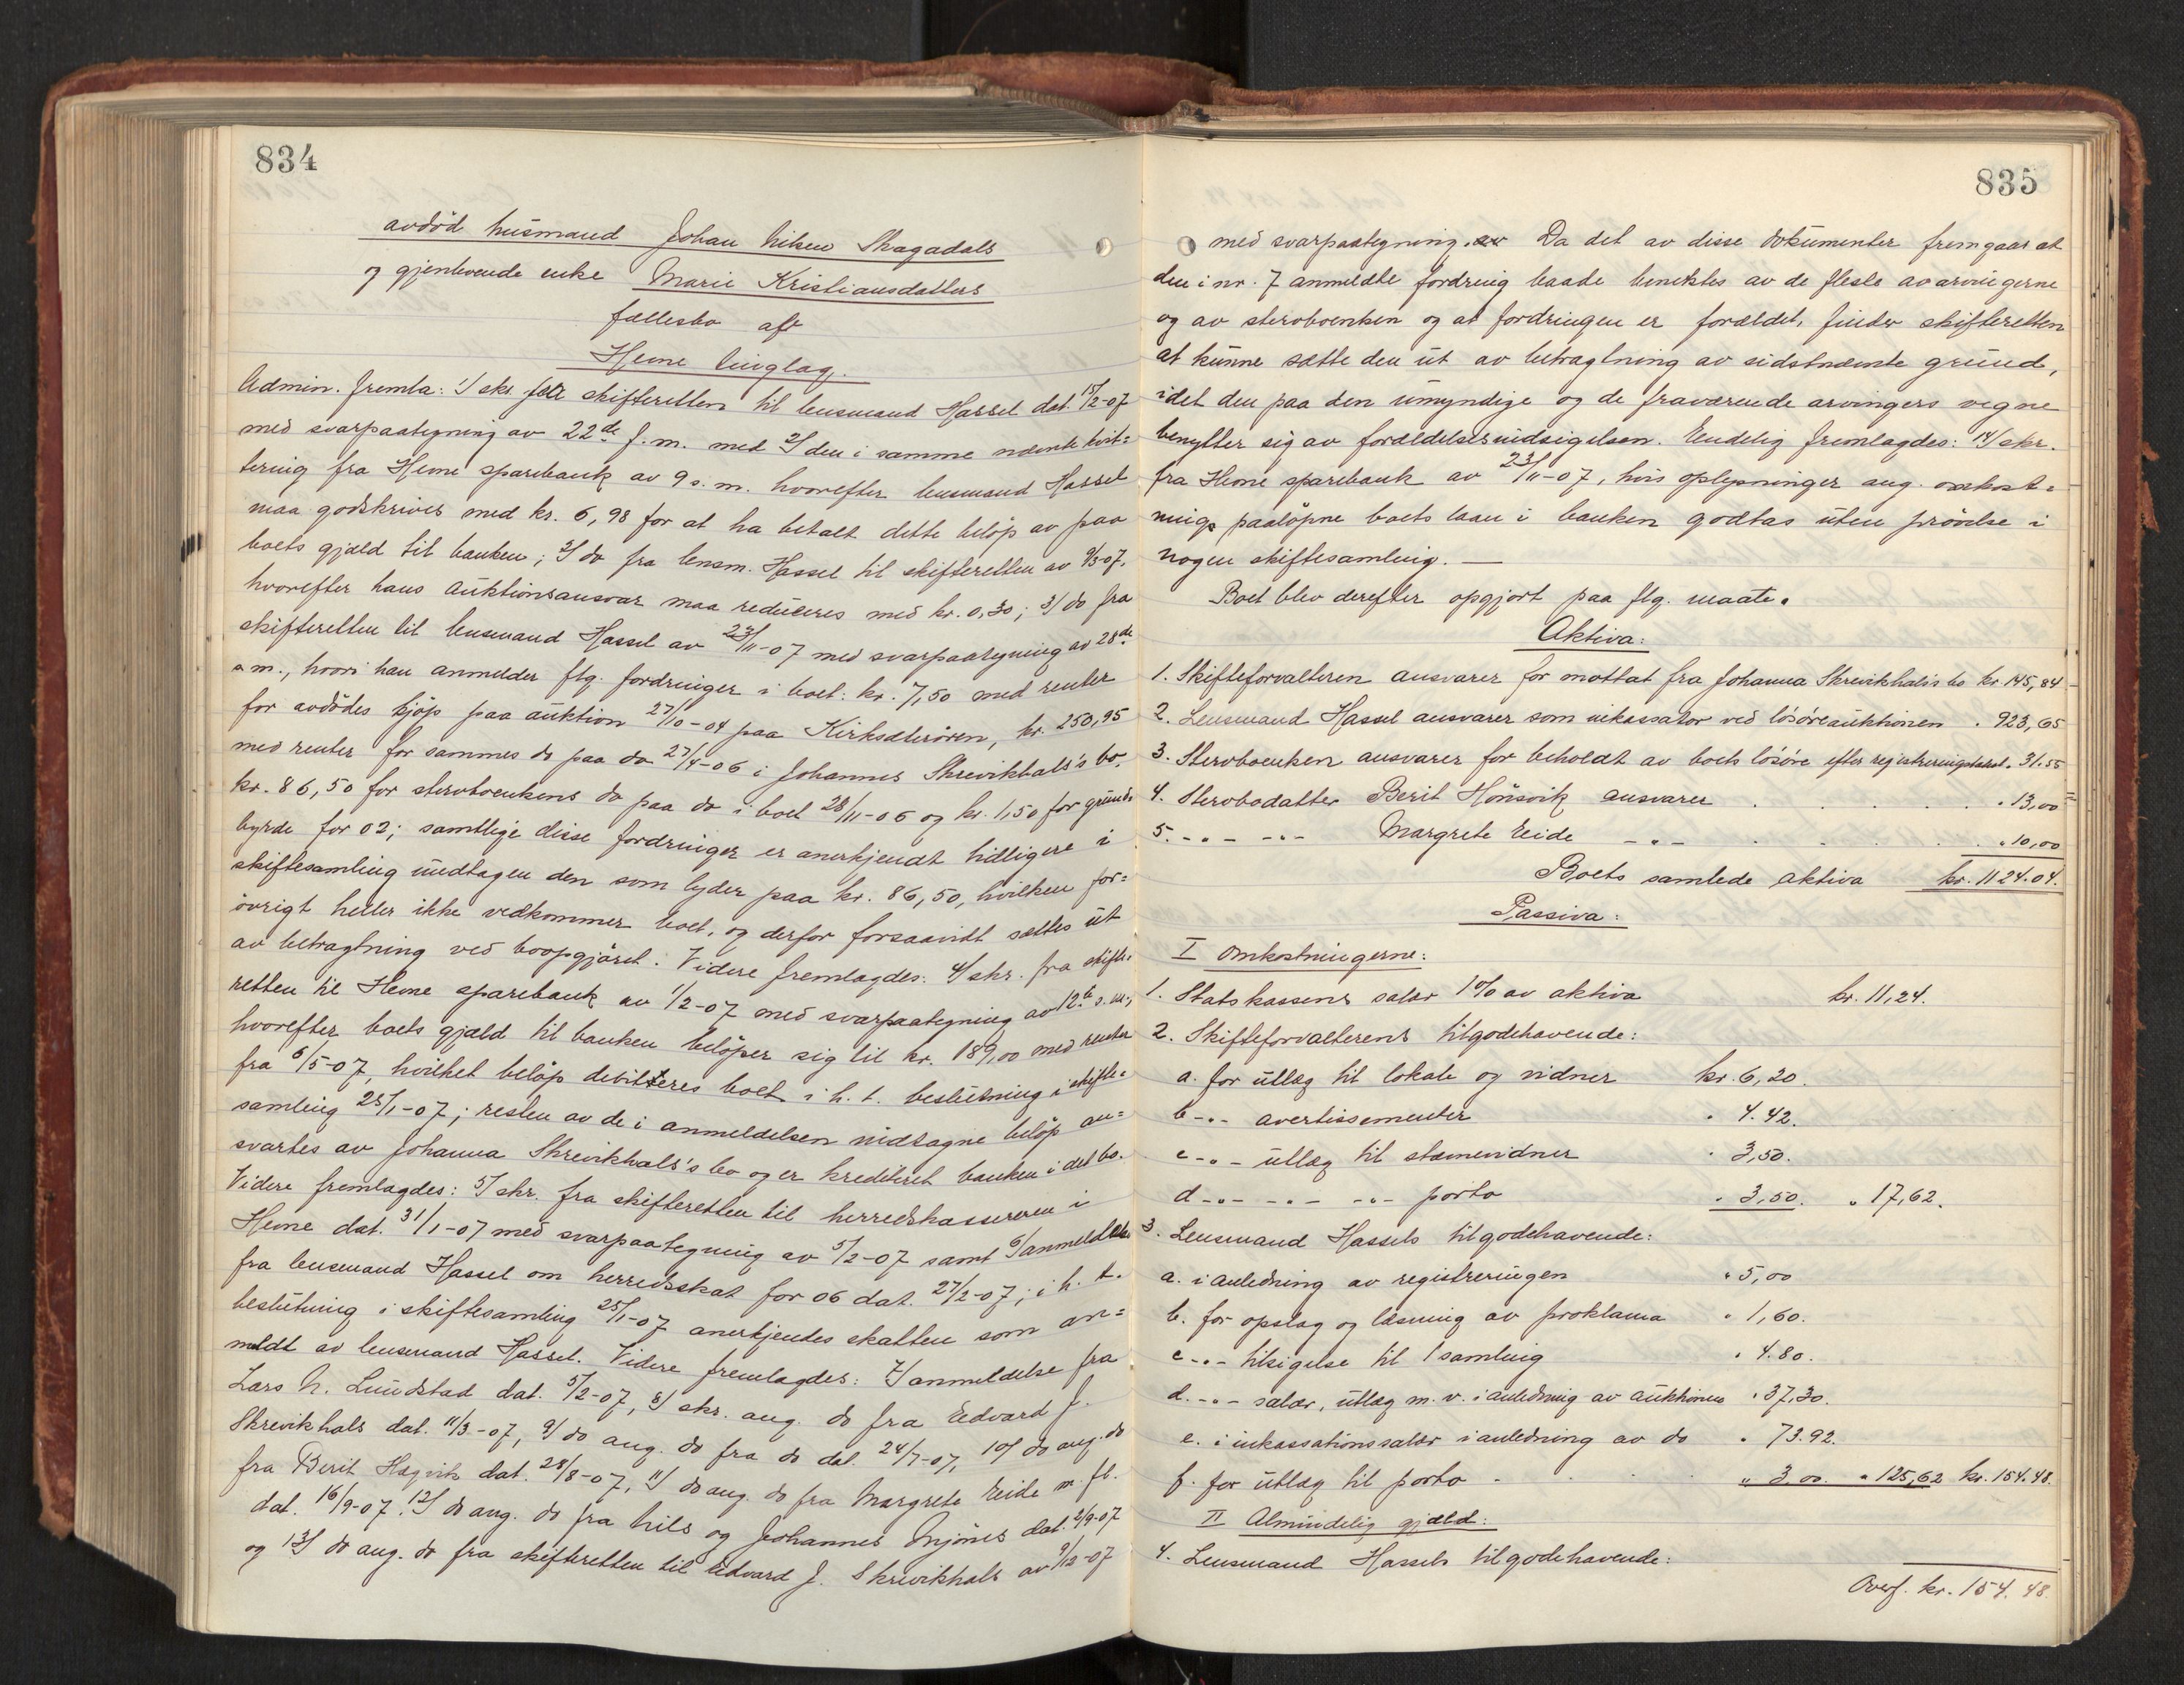 834
avdöd husmand Johan Nilsen Skagadals
og gjenlevende enke Marie Kristiansdatters
fællesbo afs
Hevne tinglag.
Admin. fremla: 1/ skr. fra skifteretten til lensmand Hassel dat. 15/2-07
med svarpaategning av 22de f. m. med 2/ den i samme nævnte kvit=
tering fra Hevne sparebank av 9 s. m. hvorefter lensmand Hassel
maa godskrives med kr. 6,98 for at ha betalt dette belöp av paa
boets gjæld til banken; 3/ do fra lensm. Hassel til skifteretten av 9/3-07.
hvorefter hans auktionsansvar maa reduceres med kr. 0,30; 3/ do fra
skifteretten til lensmand Hassel av 23/11-07 med svarpaategning av 28de
s. m., hvori han anmelder flg. fordringer i boet: kr. 7,50 med renter
for avdödes kjöp paa auktion 27/10-04 paa Kirksæterören, kr. 250,95
med renter for sammes do paa do 27/4-06 i Johannes Skrevikhals's bo,
kr. 86,50 for stervboenkens do paa do i boet 28/11-06 og kr. 1,50 for grund=
byrde for 02; samtlige disse fordringer er anerkjendt tidligere i
skiftesamling undtagen den som lyder paa kr. 86,50, hvilken for=
övrigt heller ikke vedkommer boet, og derfor forsaavidt sættes ut
av betragtning ved boopgjöret. Videre fremlagdes: 4/ skr. fra skifte=
retten til Hevne sparebank av 1/2-07 med svarpaategning av 12te s. m.,
hvorefter boets gjæld til banken belöper sig til kr. 189,00 med renter
fra 6/5-07, hvilket belöp debiteres boet i h. t. beslutning i skifte=
samling 25/1-07; resten av de i anmeldelsen indtagne belöp an=
svartes av Johanna Skrevikhals's bo og er krediteret banken i det bo.
Videre fremlagdes: 5/ skr. fra skifteretten til herredskassereren i
Hevne dat. 31/1-07 med svarpaategning av 5/2-07 samt 6/ anmeldelse
fra lensmand Hassel om herredsskat for 06 dat. 27/2-07; i h. t.
beslutning i skiftesamling 25/1-07 anerkjendes skatten som an=
meldt av lensmand Hassel. Videre fremlagdes: 7/ anmeldelse fra
Lars N. Lundstad dat. 5/2-07, 8/ skr. ang. do fra Edvard J.
Skrevikhals dat. 11/3-07, 9/ do ang. do fra do dat. 24/7-07, 10/ do ang. do
fra Berit Hagvik dat. 28/8-07, 11/ do ang. do fra Margrete Eide m. fl.
dat. 16/9-07. 12/ do ang. do fra Nils og Johannes Mjönes dat. 2/9-07
og 13/ do ang. do fra skifteretten til Edvard J. Skrevikhals av 9/12-07
835
med svarpaategning. Da det av disse dokumenter fremgaar at
den i nr. 7 anmeldte fordring baade benektes av de fleste av arvingerne
og av stervboenken og at fordringen er forældet, finder skifteretten
at kunne sætte den ut av betragtning av sidstnævnte grund,
idet den paa den umyndige og de fraværende arvingers vegne
benytter sig av forældelsesindsigelsen. Endelig fremlagdes: 14/ skr.
fra Hevne sparebank av 23/11-07, hvis oplysninger ang. omkost=
nings paalöpne boets laan i banken godtas uten prövelse i
nogen skiftesamling. —
Boet blev derefter opgjort paa flg. maate.
Aktiva:
1. Skifteforvalteren ansvarer for mottat fra Johanna Skrevikhals's bo kr 145,84
2. Lensmand Hassel ansvarer som inkassator ved lösöreauktionen " 923,65
3. Stervboenken ansvarer for beholdt av boets lösöre efter registreringstakst " 31.55
4. Stervbodatter Berit Hönsvik ansvarer . . . . " 13,00
5. -"- -"- Margrete Eide -"- . . . . " 10,00
Boets samlede aktiva kr. 1124.04.
Passiva:
I Omkostningerne:
1. Statskassens salær 1% av aktiva kr. 11,24.
2. Skifteforvalterens tilgodehavende:
a. for utlæg til lokale og vidner kr. 6,20.
b -"- avertissementer " 4.42.
c -"- utlæg til stævnevidner " 3,50.
d -"- -"- -"- porto " 3,50. " 17,62.
3. Lensmand Hassels tilgodehavende:
a. i anledning av registreringen " 5,00
b. for opslag og læsning av proklama " 1,60.
c -"- tilsigelse til 1 samling " 4.80.
d. -"- salær, utlæg m. v. i anledning av auktionen " 37,30.
e. i inkassationssalær i anledning av do " 73.92.
f. for utlæg til porto . . . " 3,00. " 125,62 kr. 154.48.
II Almindelig gjæld:
4. Lensmand Hassels tilgodehavende:
Overf. kr. 154.48.